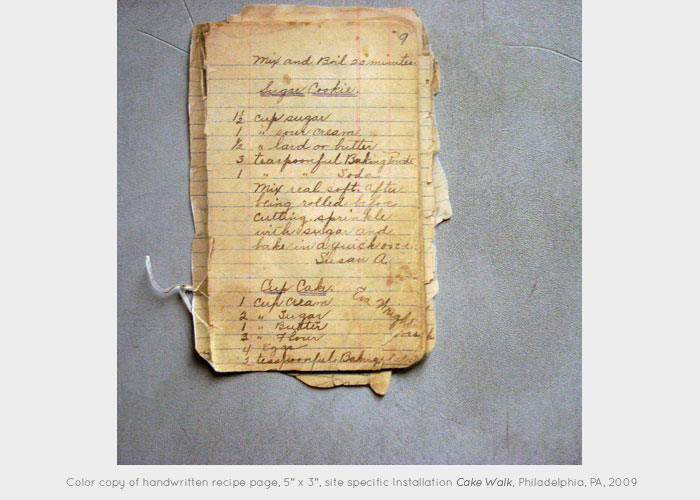 9
Mix and Boil 20 minutes
Sugar Cookie.
1½ cup sugar
1 " sour cream
½ " lard or butter
3 teaspoonful Baking Powde
1 " " Soda
Mix real soft. After
being rolled before
cutting. sprinkle
with sugar and
bake in a quick oven.
Susan A.
Cup Cake.
1 Cup Cream
2 " Sugar
1 " Butter
3 " Flour
4 Eggs
3 teaspoonful Baking
Eva Wright
Color copy of handwritten recipe page, 5" x 3", site specific Installation Cake Walk, Philadelphia, PA, 2009